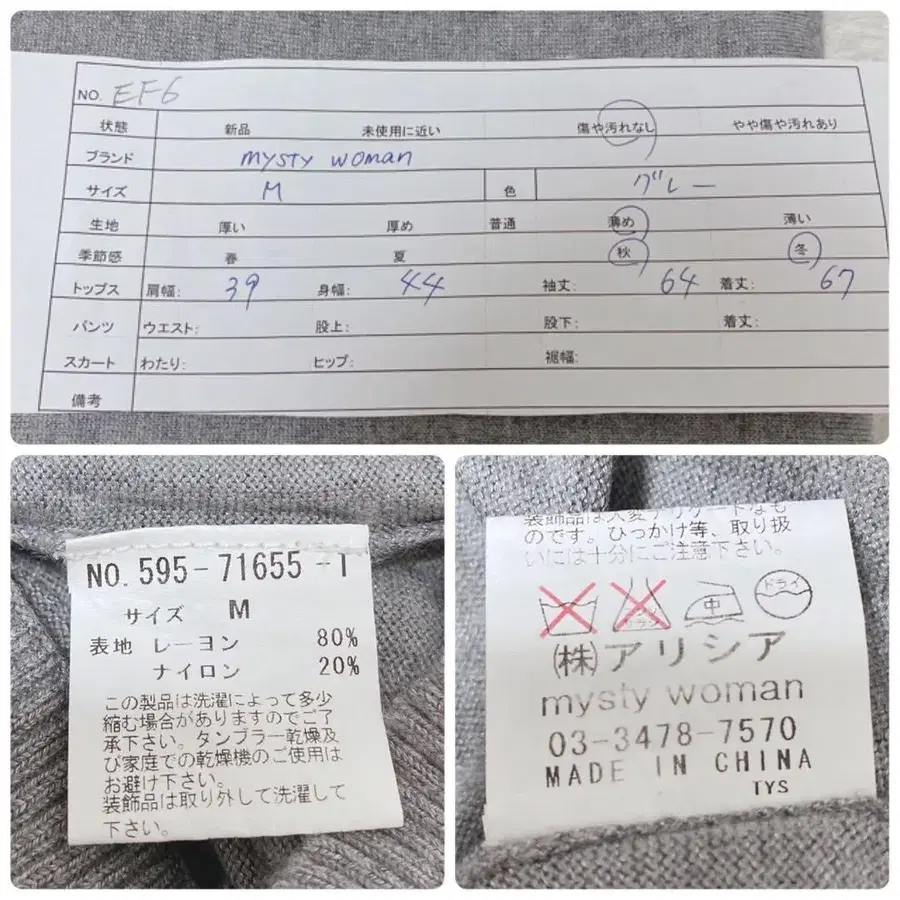 NO. EF6
状態 新品 未使用に近い 傷や汚れなし やや傷や汚れあり
ブランド mysty woman
サイズ M 色 グレー
生地 厚い 厚め 普通 薄め 薄い
季節感 春 夏 秋 冬
トップス 肩幅: 39 身幅: 44 袖丈: 64 着丈: 67
パンツ ウエスト: 股上: 股下: 着丈:
スカート わたり: ヒップ: 裾幅:
備考
NO. 595-71655-1
サイズ M
表地 レーヨン 80%
ナイロン 20%
この製品は洗濯によって多少
縮む場合がありますのでご了
承下さい。タンブラー乾燥及
び家庭での乾燥機のご使用は
お避け下さい。
装飾品は取り外して洗濯して
下さい。
装飾品は大変デリケートなも
のです。ひっかけ等、取り扱
いには十分にご注意下さい。
中 ドライ
(株)アリシア
mysty woman
03-3478-7570
MADE IN CHINA
TYS